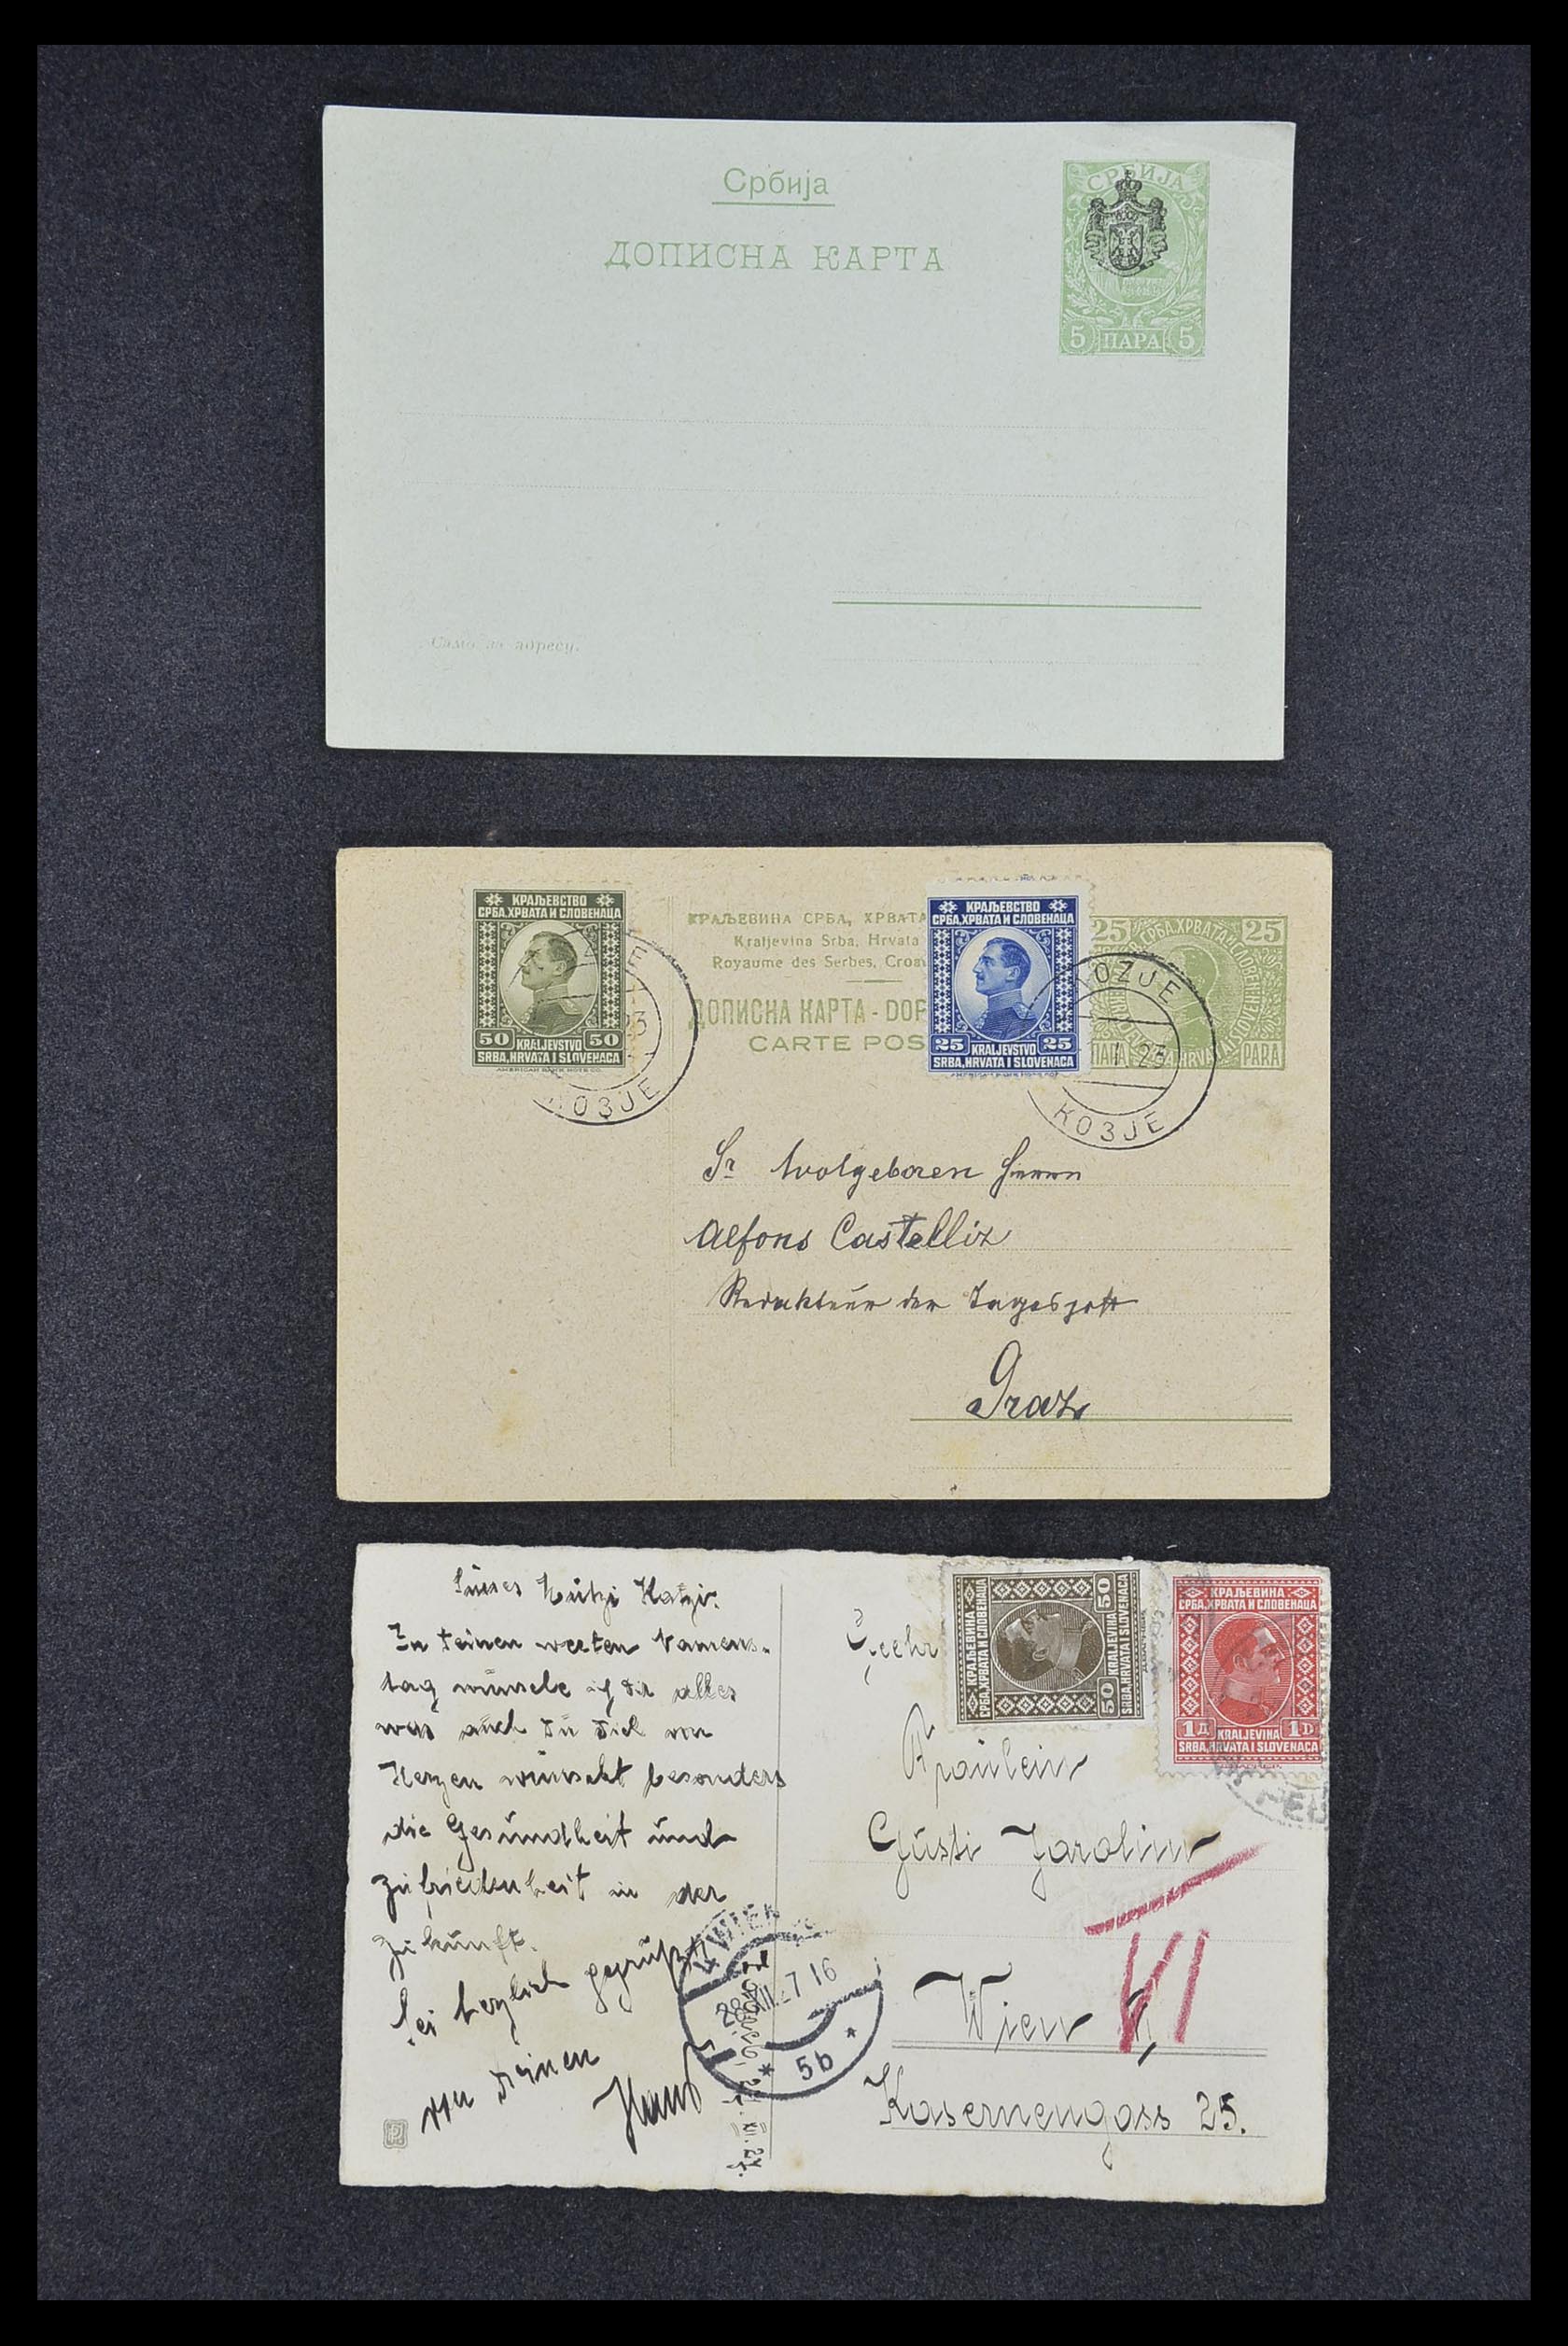 Србија
ДОПИСНА КАРТА
СРБИЈА
5 ПАРА 5
Само за адресу.
КРАЉЕВСТВО
СРБА, ХРВАТА И СЛОВЕНАЦА
50 KRALJEVSTVO 50
SRBA, HRVATA I SLOVENACA
AMERICAN BANK NOTE CO.
23
KOЗJE
КРАЉЕВИНА СРБА, ХРВАТА
Kraljevina Srba, Hrvata
Royaume des Serbes, Croa
ДОПИСНА КАРТА - DOP
CARTE POS
КРАЉЕВСТВО
СРБА, ХРВАТА И СЛОВЕНАЦА
25 KRALJEVSTVO 25
SRBA, HRVATA I SLOVENACA
25 СРБА, ХРВАТА И СЛОВЕНАЦА 25
ПАРА PARA
OZJE
I 23
KOЗJE
Sr. Wolgeboren Herrn
Alfons Castelliz
Redakteur der Tagespost
Graz
Mitzi Katzi.
Zu deinen werten Namens-
tag wünsche ich dir alles
was auch Du Dich von
Herzen wünscht besonders
die Gesundheit und
Zufriedenheit in der
Zukunft.
Sei herzlich gegrüßt
von Deinen
Hans
XII. 27.
WIEN
XII 27 16
* 5b *
Geehr
КРАЉЕВИНА
СРБА, ХРВАТА И СЛОВЕНАЦА
50 KRALJEVINA 50
SRBA, HRVATA I SLOVENACA
КРАЉЕВИНА
СРБА, ХРВАТА И СЛОВЕНАЦА
1Д KRALJEVINA 1D
SRBA, HRVATA I SLOVENACA
Fräulein
Gusti Jarolim
VI
Wien
Kasernengass 25.